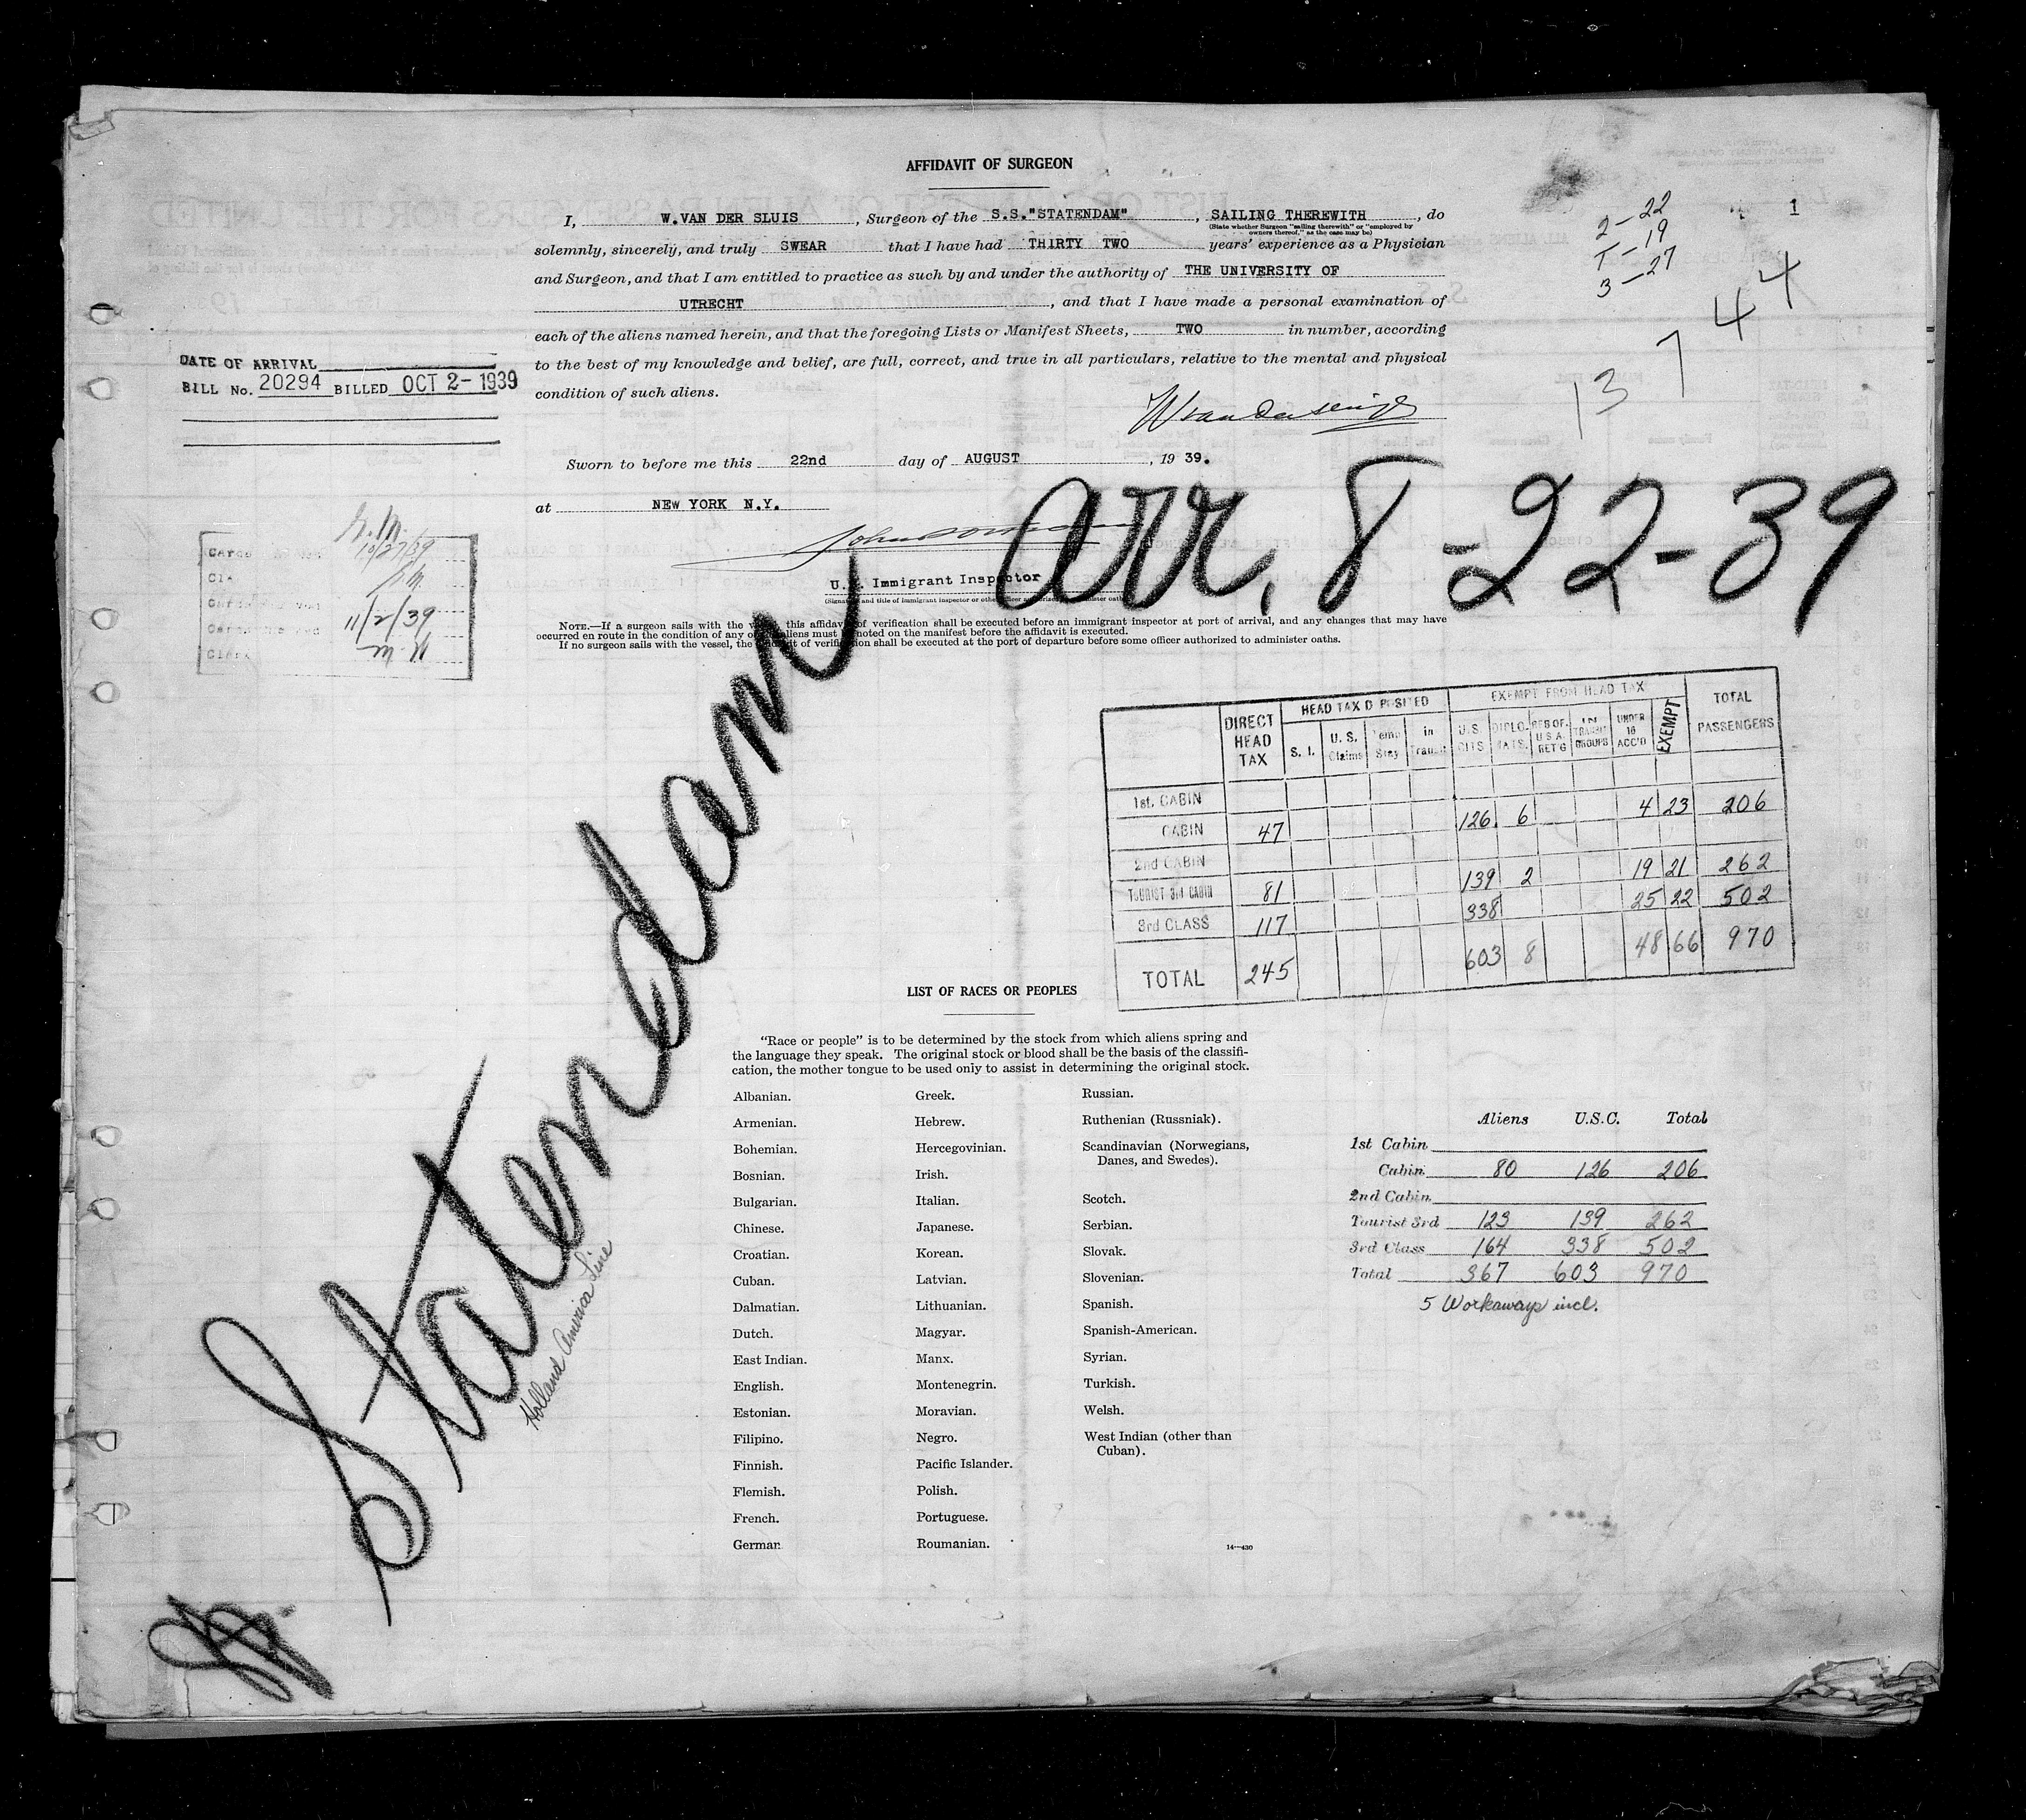 AFFIDAVIT OF SURGEON
1
I, W.VAN DER SLUIS, Surgeon of the S.S."STATENDAM", SAILING THEREWITH, do
(State whether Surgeon "sailing therewith" or "employed by
owners thereof," as the case may be)
solemnly, sincerely, and truly SWEAR that I have had THIRTY TWO years' experience as a Physician
and Surgeon, and that I am entitled to practice as such by and under the authority of THE UNIVERSITY OF
UTRECHT, and that I have made a personal examination of
each of the aliens named herein, and that the foregoing Lists or Manifest Sheets, TWO in number, according
to the best of my knowledge and belief, are full, correct, and true in all particulars, relative to the mental and physical
condition of such aliens.
2-22
T-19
3-27
13744
DATE OF ARRIVAL
BILL No. 20294 BILLED OCT 2-1939
Sworn to before me this 22nd day of AUGUST, 1939.
at NEW YORK N.Y.
U.S. Immigrant Inspector
arr. 8-22-39
10/27/39
11/2/39
NOTE.—If a surgeon sails with the this affidavit of verification shall be executed before an immigrant inspector at port of arrival, and any changes that may have
occurred en route in the condition of any of aliens must noted on the manifest before the affidavit is executed.
If no surgeon sails with the vessel, the of verification shall be executed at the port of departure before some officer authorized to administer oaths.
Statendam
Holland America Line
DIRECT HEAD TAX HEAD TAX DEPOSITED EXEMPT FROM HEAD TAX TOTAL PASSENGERS
S. I. U. S. Claims Temp Stay in Transit U.S. CITS. DIPLOMATS. RES OF U S A. RET'G TRANSIT GROUPS UNDER 16 ACC'D EXEMPT
1st. CABIN
CABIN 47 126 6 4 23 206
2nd CABIN
TOURIST 3rd CABIN 81 139 2 19 21 262
3rd CLASS 117 338 25 22 502
TOTAL 245 603 8 48 66 970
LIST OF RACES OR PEOPLES
"Race or people" is to be determined by the stock from which aliens spring and
the language they speak. The original stock or blood shall be the basis of the classifi-
cation, the mother tongue to be used only to assist in determining the original stock.
Albanian.
Armenian.
Bohemian.
Bosnian.
Bulgarian.
Chinese.
Croatian.
Cuban.
Dalmatian.
Dutch.
East Indian.
English.
Estonian.
Filipino.
Finnish.
Flemish.
French.
German
Greek.
Hebrew.
Hercegovinian.
Irish.
Italian.
Japanese.
Korean.
Latvian.
Lithuanian.
Magyar.
Manx.
Montenegrin.
Moravian.
Negro.
Pacific Islander.
Polish.
Portuguese.
Roumanian.
Russian.
Ruthenian (Russniak).
Scandinavian (Norwegians,
Danes, and Swedes).
Scotch.
Serbian.
Slovak.
Slovenian.
Spanish.
Spanish-American.
Syrian.
Turkish.
Welsh.
West Indian (other than
Cuban).
14—430
Aliens U.S.C. Total
1st Cabin
Cabin 80 126 206
2nd Cabin
Tourist 3rd 123 139 262
3rd Class 164 338 502
Total 367 603 970
5 Workaways incl.